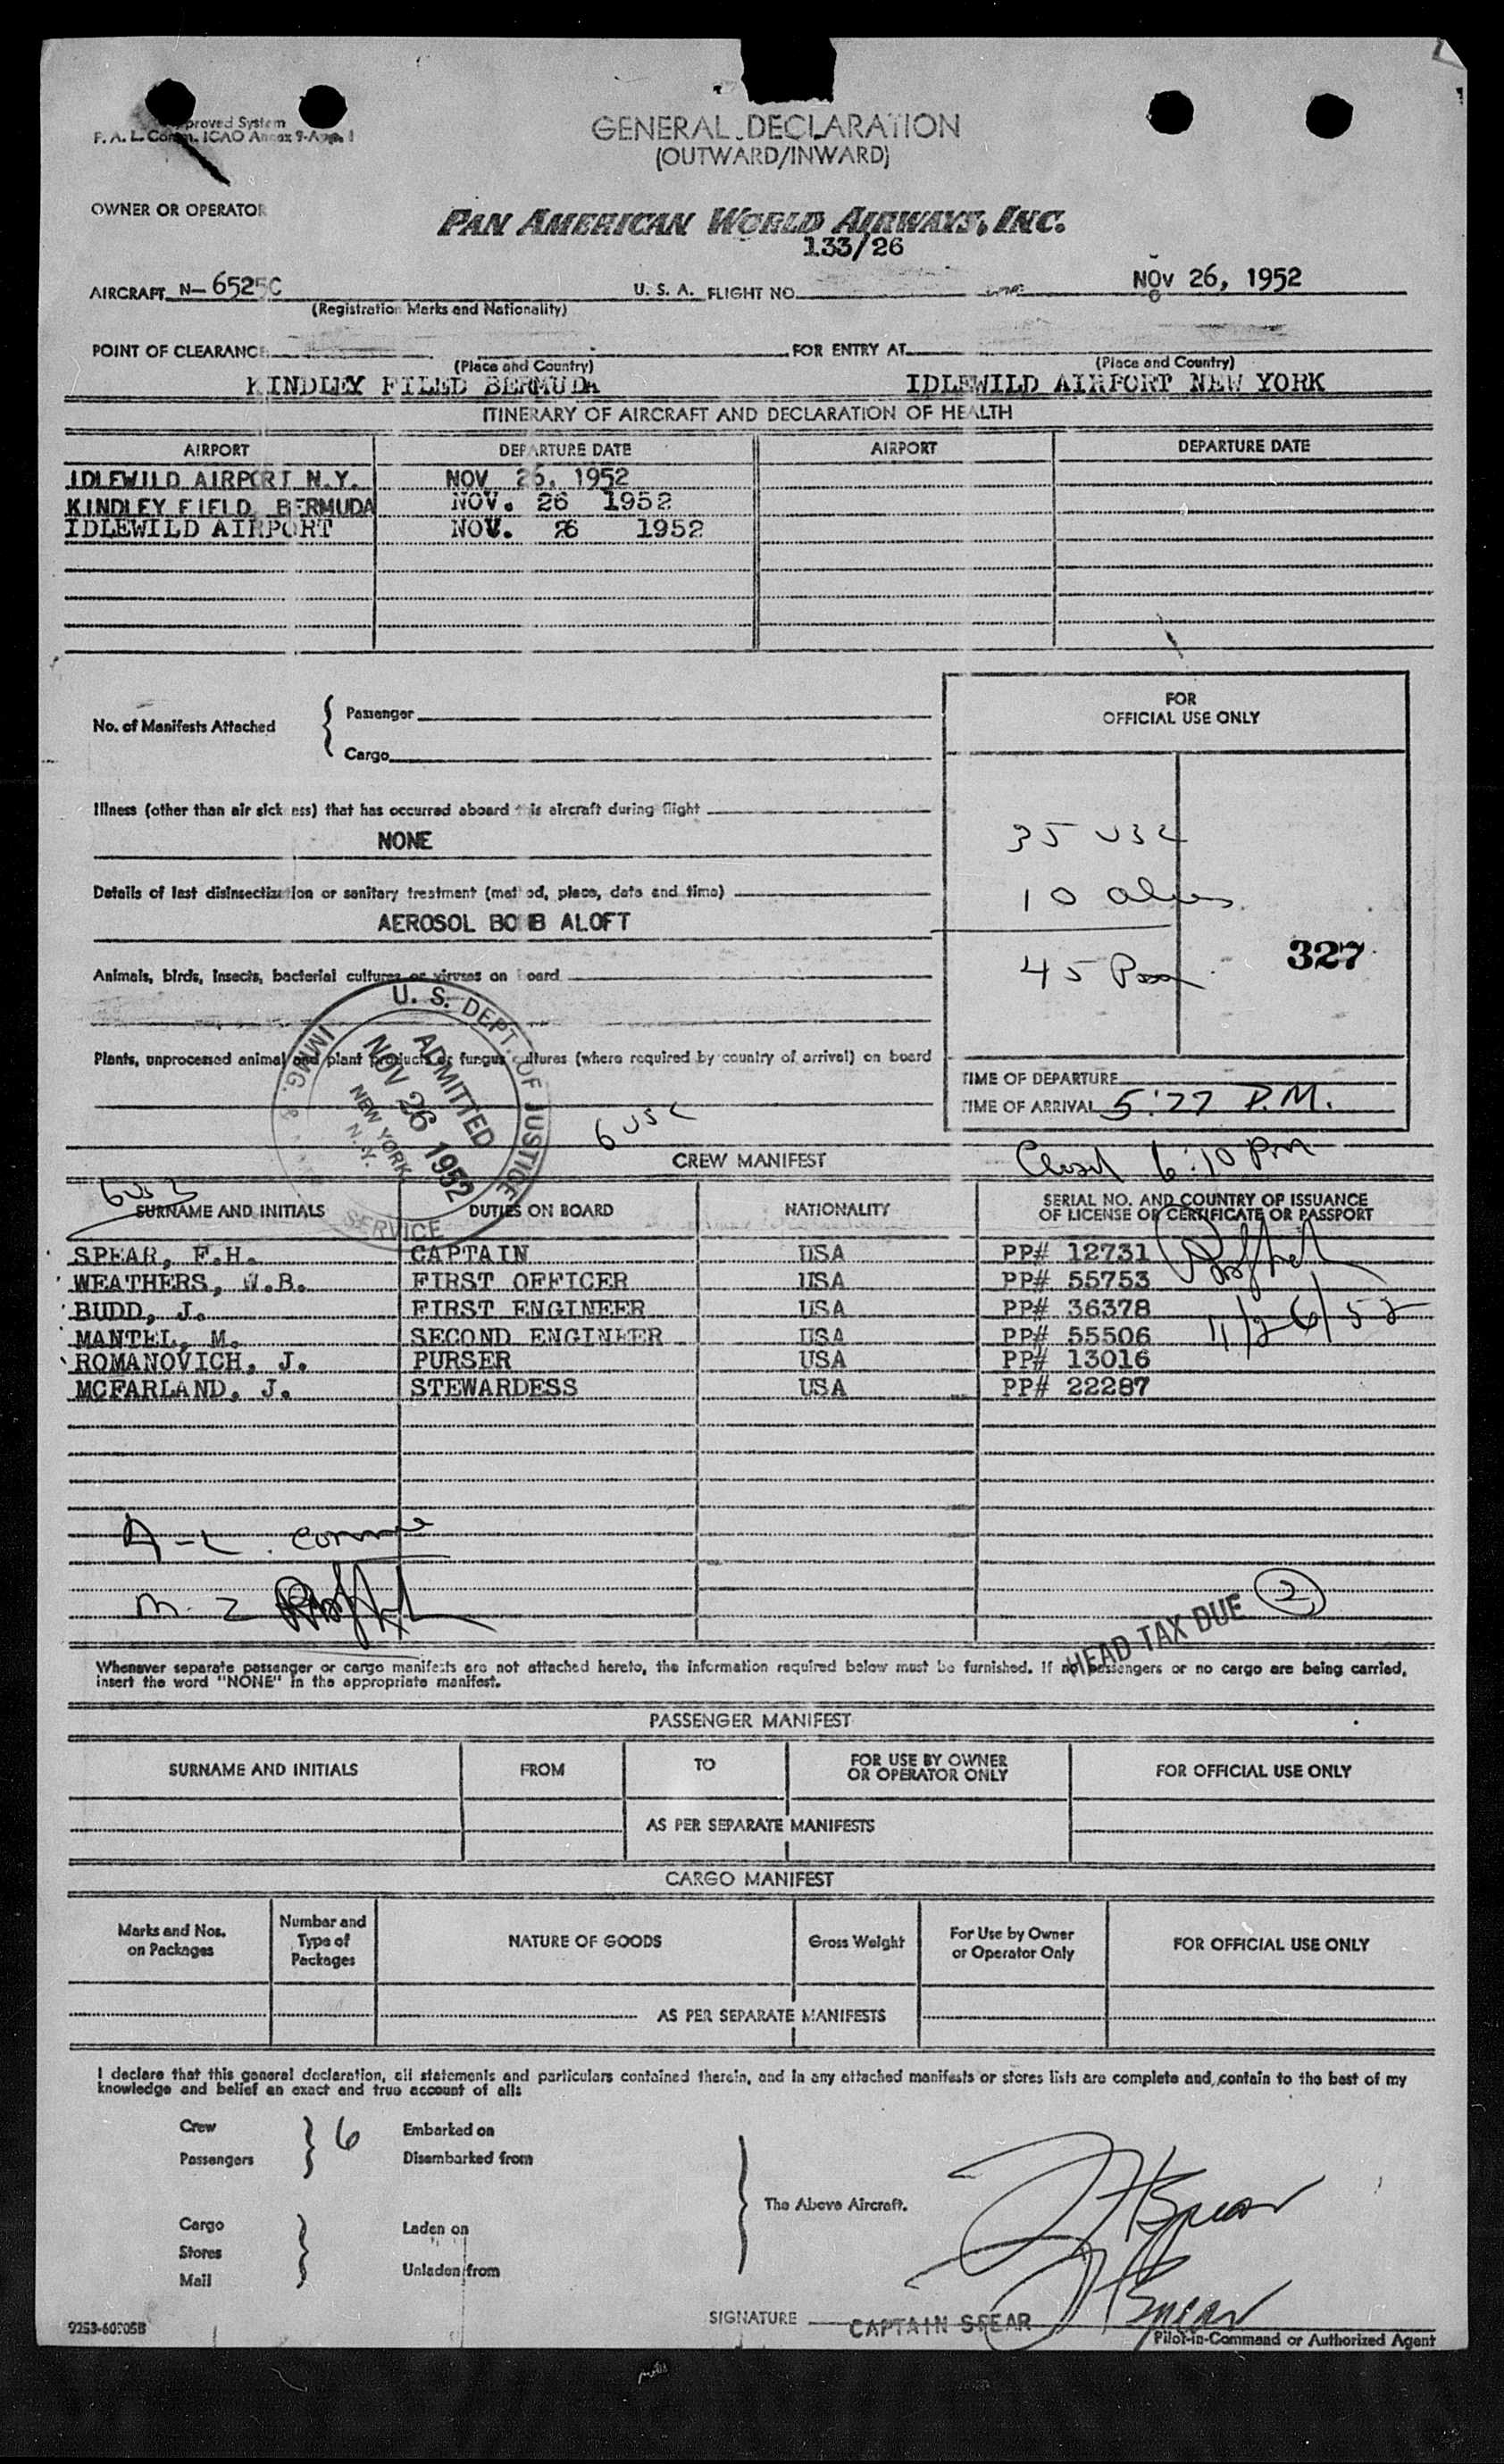 Approved System
F. A. L. Comm. ICAO Annex 9-App. 1
GENERAL DECLARATION
(OUTWARD/INWARD)
OWNER OR OPERATOR
PAN AMERICAN WORLD AIRWAYS, INC.
133/26
AIRCRAFT N- 6525C U. S. A. FLIGHT NO. NOv 26, 1952
(Registration Marks and Nationality)
POINT OF CLEARANCE FOR ENTRY AT
(Place and Country) (Place and Country)
KINDLEY FILED BERMUDA IDLEWILD AIRPORT NEW YORK
ITINERARY OF AIRCRAFT AND DECLARATION OF HEALTH
AIRPORT DEPARTURE DATE AIRPORT DEPARTURE DATE
IDLEWILD AIRPORT N.Y. NOV 26, 1952
KINDLEY FIELD, BERMUDA NOV. 26 1952
IDLEWILD AIRPORT NOV. 26 1952
No. of Manifests Attached
Passenger
Cargo
FOR
OFFICIAL USE ONLY
Illness (other than air sickness) that has occurred aboard this aircraft during flight
NONE
35 USC
Details of last disinsectization or sanitary treatment (method, place, date and time)
10 aliens
AEROSOL BOMB ALOFT
45 Pass
327
Animals, birds, insects, bacterial cultures or viruses on board
Plants, unprocessed animal and plant products or fungus cultures (where required by country of arrival) on board
U. S. DEPT. OF JUSTICE
IMMG. & SERVICE
ADMITTED
NOV 26 1952
NEW YORK
N.Y.
TIME OF DEPARTURE
TIME OF ARRIVAL 5:27 P.M.
6 USC
CREW MANIFEST
Closed 6:10 PM
6 USC
SURNAME AND INITIALS DUTIES ON BOARD NATIONALITY SERIAL NO. AND COUNTRY OF ISSUANCE
OF LICENSE OR CERTIFICATE OR PASSPORT
SPEAR, F.H. CAPTAIN USA PP# 12731
WEATHERS, W.B. FIRST OFFICER USA PP# 55753
BUDD, J. FIRST ENGINEER USA PP# 36378
MANTEL, M. SECOND ENGINEER USA PP# 55506 11/26/52
ROMANOVICH, J. PURSER USA PP# 13016
MCFARLAND, J. STEWARDESS USA PP# 22287
HEAD TAX DUE 2
Whenever separate passenger or cargo manifests are not attached hereto, the information required below must be furnished. If no passengers or no cargo are being carried,
insert the word "NONE" in the appropriate manifest.
PASSENGER MANIFEST
SURNAME AND INITIALS FROM TO FOR USE BY OWNER
OR OPERATOR ONLY FOR OFFICIAL USE ONLY
AS PER SEPARATE MANIFESTS
CARGO MANIFEST
Marks and Nos.
on Packages
Number and
Type of
Packages
NATURE OF GOODS
Gross Weight
For Use by Owner
or Operator Only
FOR OFFICIAL USE ONLY
AS PER SEPARATE MANIFESTS
I declare that this general declaration, all statements and particulars contained therein, and in any attached manifests or stores lists are complete and, contain to the best of my
knowledge and belief an exact and true account of all:
Crew 6 Embarked on
Passengers Disembarked from
The Above Aircraft.
FHSpear
Cargo Laden on
Stores
Mail Unladen from
FHSpear
SIGNATURE CAPTAIN SPEAR
Pilot-in-Command or Authorized Agent